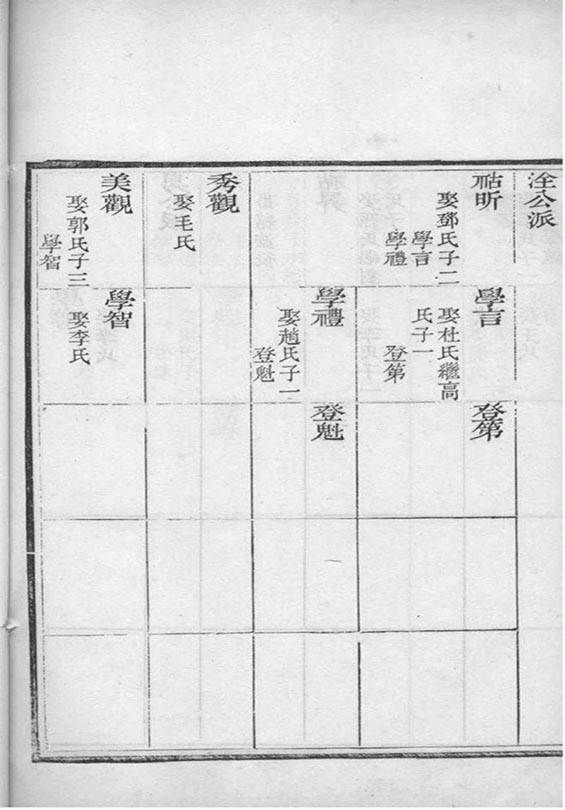 淦公派
祜昕
娶鄧氏子二
學言
學禮
學言
娶杜氏繼高
氏子一
登第
登第
學禮
娶趙氏子一
登魁
登魁
秀觀
娶毛氏
美觀
娶郭氏子三
學智
學智
娶李氏